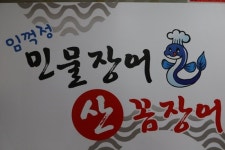 임꺽정
민물장어
산 꼼장어